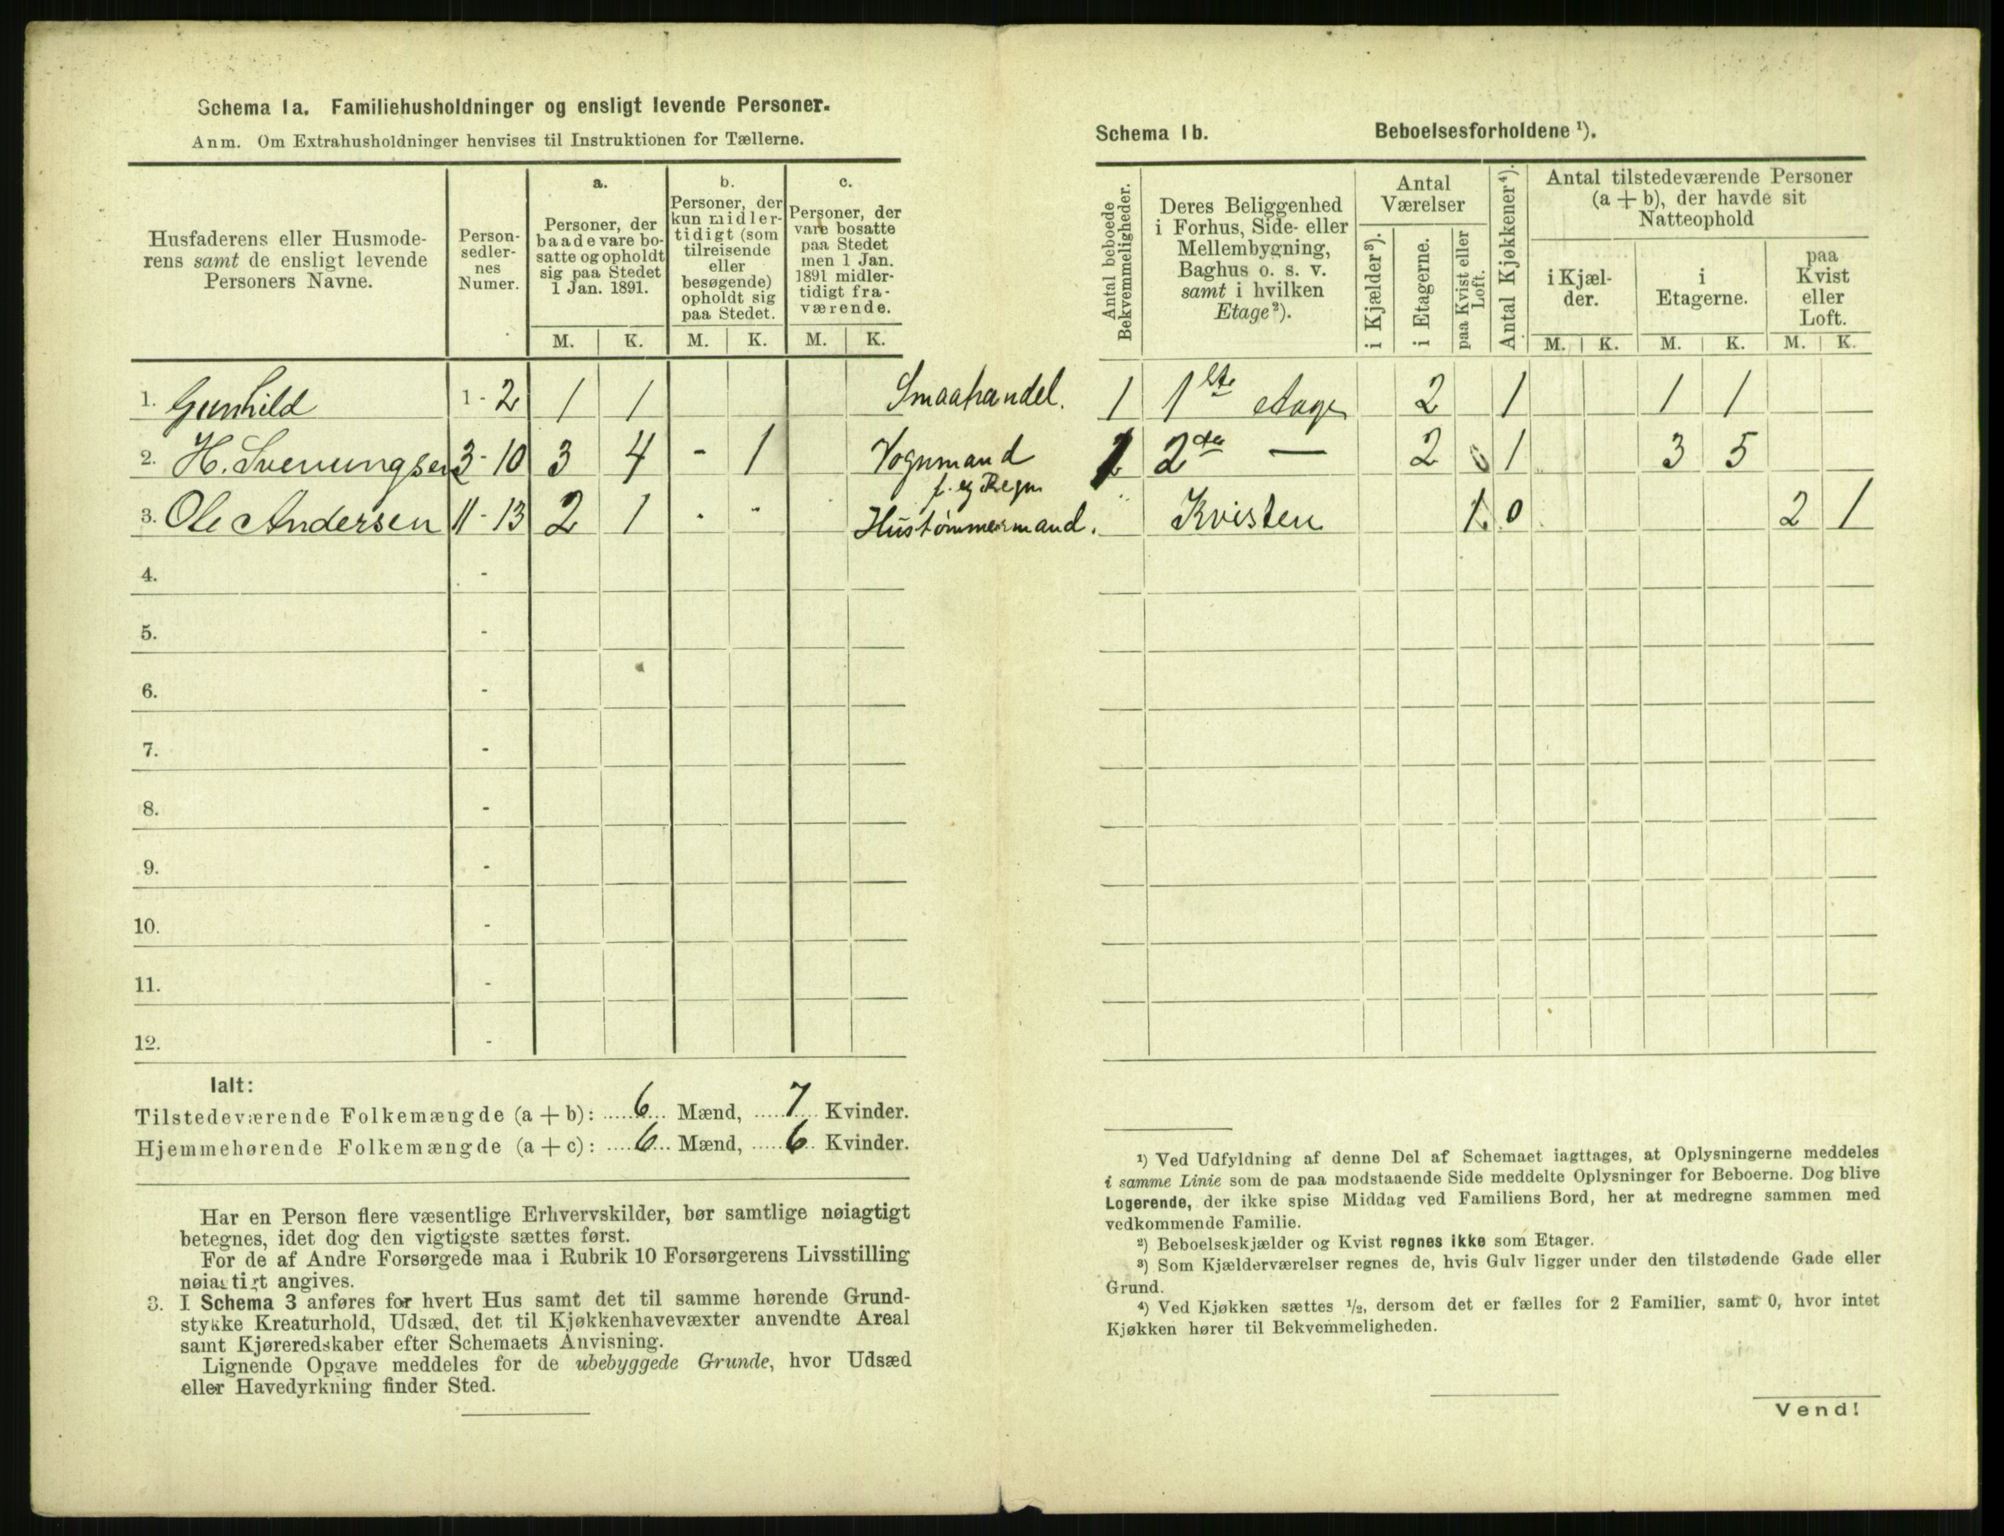 Schema 1a. Familiehusholdninger og ensligt levende Personer.
Anm. Om Extrahusholdninger henvises til Instruktionen for Tællerne.
Husfaderens eller Husmode-
rens samt de ensligt levende
Personers Navne.
Person-
sedler-
nes
Numer.
a.
Personer, der
baade vare bo-
satte og opholdt
sig paa Stedet
1 Jan. 1891.
b.
Personer, der
kun midler-
tidigt (som
tilreisende
eller
besøgende)
opholdt sig
paa Stedet.
c.
Personer, der
vare bosatte
paa Stedet
men 1 Jan.
1891 midler-
tidigt fra-
værende.
M. K. M. K. M. K.
1. Gunhild 1 - 2 1 1 Smaahandel.
2. H. Svenungsen 3 - 10 3 4 - 1 Vognmand
f. eg Regn
3. Ole Andersen 11 - 13 2 1 - - Hustømmermand.
4. -
5. -
6. -
7. -
8. -
9. -
10. -
11. -
12. -
Ialt:
Tilstedeværende Folkemængde (a + b): 6 Mænd, 7 Kvinder.
Hjemmehørende Folkemængde (a + c): 6 Mænd, 6 Kvinder.
Har en Person flere væsentlige Erhvervskilder, bør samtlige nøiagtigt
betegnes, idet dog den vigtigste sættes først.
For de af Andre Forsørgede maa i Rubrik 10 Forsørgerens Livsstilling
nøiagtigt angives.
3. I Schema 3 anføres for hvert Hus samt det til samme hørende Grund-
stykke Kreaturhold, Udsæd, det til Kjøkkenhavevæxter anvendte Areal
samt Kjøreredskaber efter Schemaets Anvisning.
Lignende Opgave meddeles for de ubebyggede Grunde, hvor Udsæd
eller Havedyrkning finder Sted.
Schema 1b. Beboelsesforholdene ¹).
Antal beboede
Bekvemmeligheder.
Deres Beliggenhed
i Forhus, Side- eller
Mellembygning,
Baghus o. s. v.
samt i hvilken
Etage²).
Antal
Værelser
i Kjælder³).
i Etagerne.
paa Kvist eller
Loft.
Antal Kjøkkener⁴).
Antal tilstedeværende Personer
(a + b), der havde sit
Natteophold
i Kjæl-
der.
i
Etagerne.
paa
Kvist
eller
Loft.
M. K. M. K. M. K.
1 1ste etage 2 1 1 1
2de — 2 0 1 3 5
" Kvisten 1 0 2 1
¹) Ved Udfyldning af denne Del af Schemaet iagttages, at Oplysningerne meddeles
i samme Linie som de paa modstaaende Side meddelte Oplysninger for Beboerne. Dog blive
Logerende, der ikke spise Middag ved Familiens Bord, her at medregne sammen med
vedkommende Familie.
²) Beboelseskjælder og Kvist regnes ikke som Etager.
³) Som Kjælderværelser regnes de, hvis Gulv ligger under den tilstødende Gade eller
Grund.
⁴) Ved Kjøkken sættes ½, dersom det er fælles for 2 Familier, samt 0, hvor intet
Kjøkken hører til Bekvemmeligheden.
Vend!